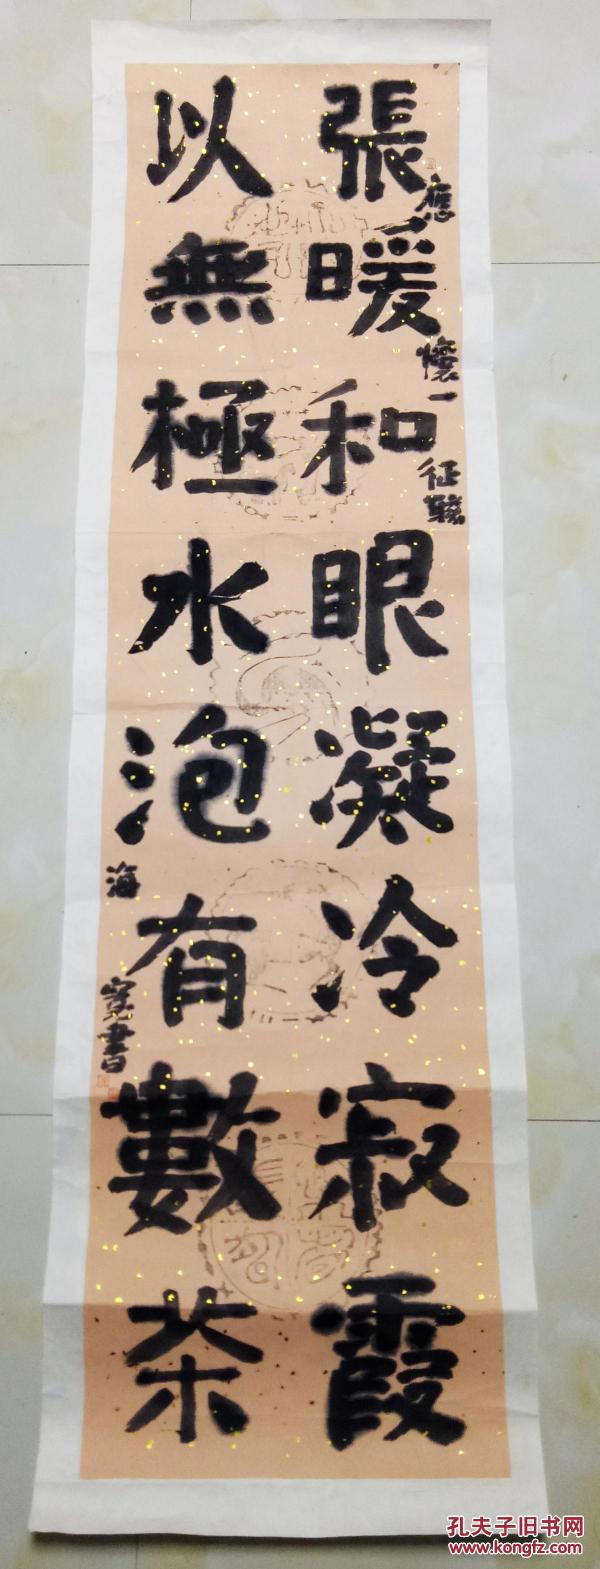 張暖和眼凝冷寂霞
以無極水泡有數茶
應懷一征
海
書
孔夫子旧书网
www.kongfz.com